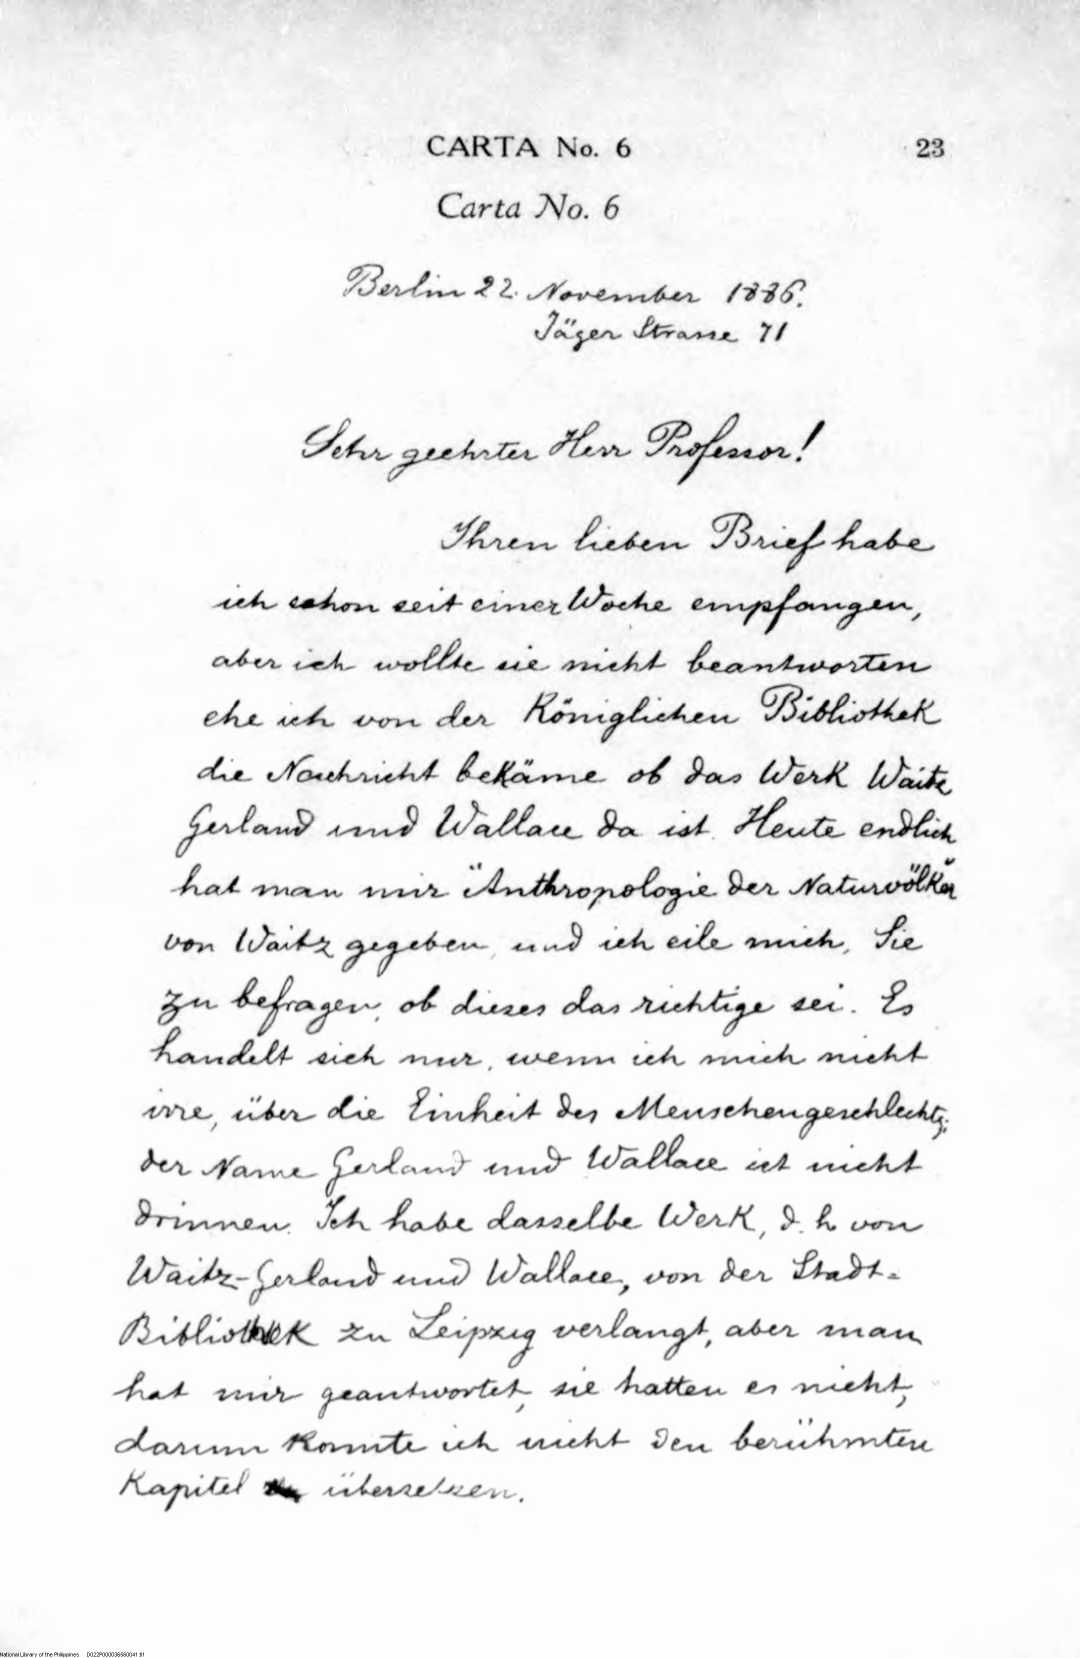 CARTA No. 6 23
Carta No. 6
Berlin 22. November 1886.
Jäger Strasse 71
Sehr geehrter Herr Professor!
Ihren lieben Brief habe
ich schon seit einer Woche empfangen,
aber ich wollte sie nicht beantworten
ehe ich von der Königlichen Bibliothek
die Nachricht bekäme ob das Werk Waitz
Gerland und Wallace da ist. Heute endlich
hat man mir "Anthropologie der Naturvölker"
von Waitz gegeben, und ich eile mich, Sie
zu befragen, ob dieses das richtige sei. Es
handelt sich nur, wenn ich mich nicht
irre, über die Einheit des Menschengeschlechts;
der Name Gerland und Wallace ist nicht
drinnen. Ich habe dasselbe Werk, d. h von
Waitz-Gerland und Wallace, von der Stadt-
Bibliothek zu Leipzig verlangt, aber man
hat mir geantwortet, sie hatten es nicht,
darum konnte ich nicht den berühmten
Kapitel übersetzen.
National Library of the Philippines